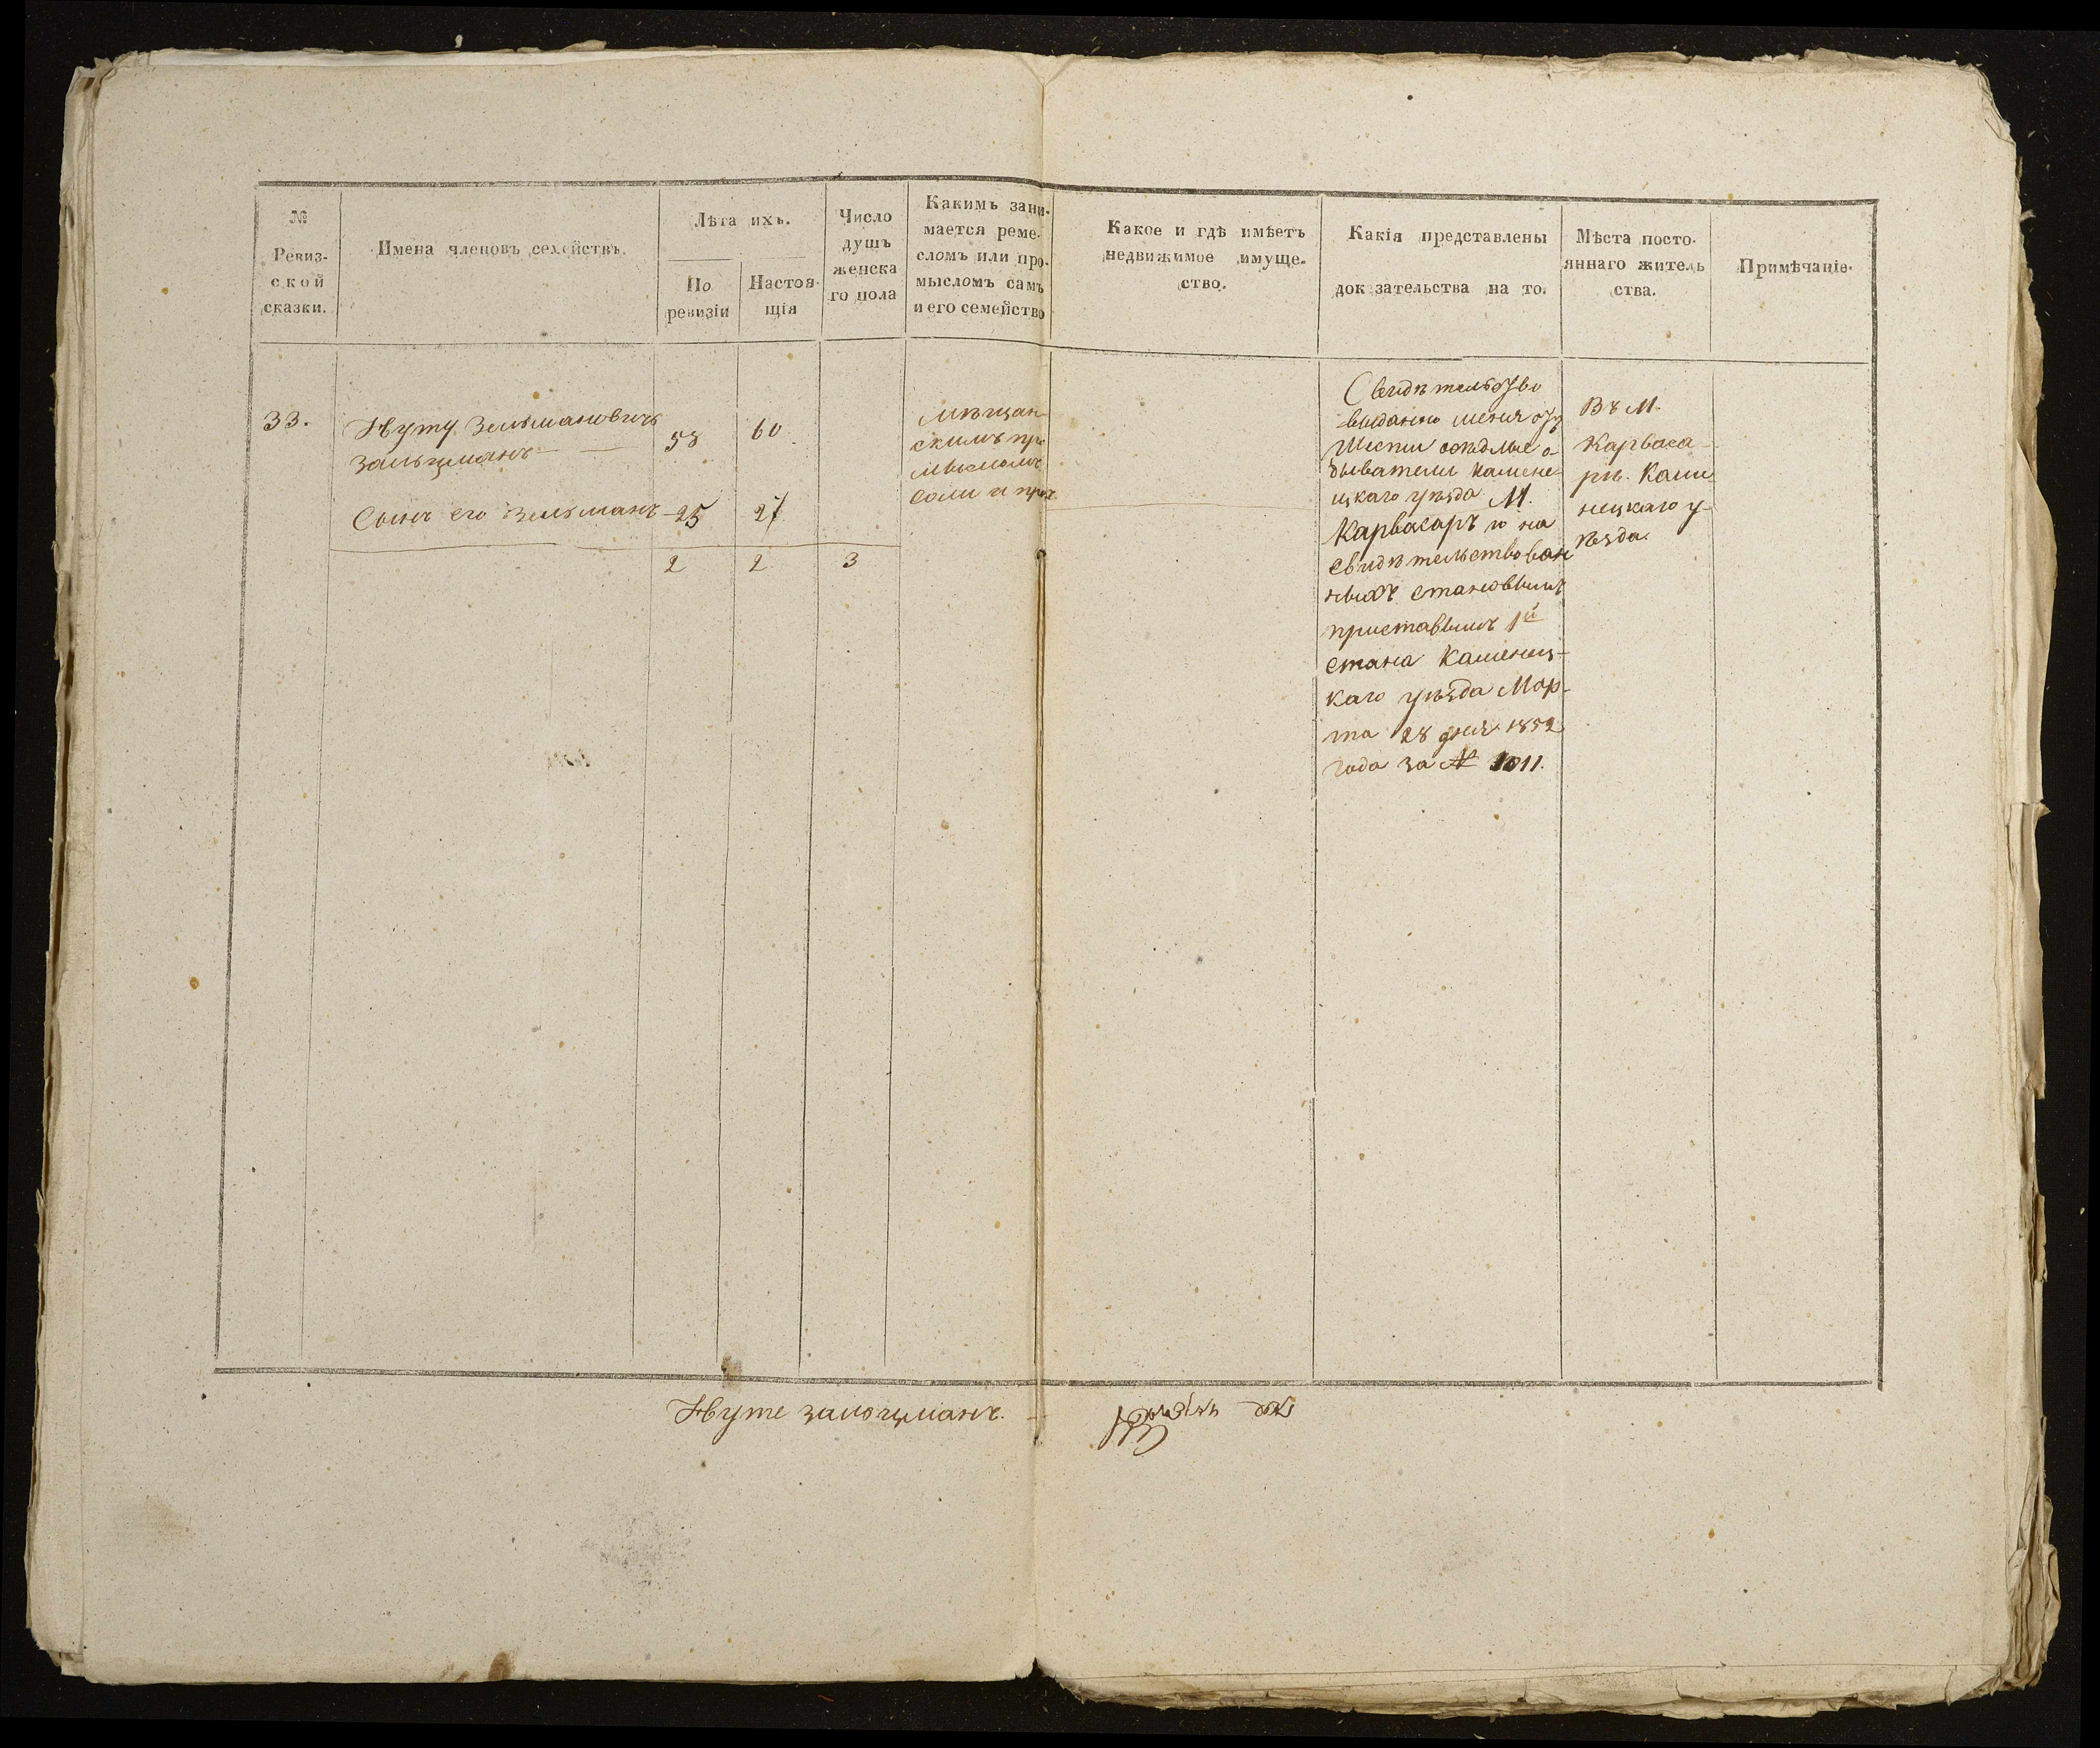 №
Ревиз-
ской
сказки.
Имена членовъ семействъ.
Лѣта ихъ.
По
ревизіи
Настоя-
щія
Число
душъ
женска
го пола
Какимъ зани-
мается реме-
сломъ или про-
мысломъ самъ
и его семейство
Какое и гдѣ имѣетъ
недвижимое имуще-
ство.
Какія представлены
док зательства на то.
Мѣста посто-
яннаго житель
ства.
Примѣчаніе.
33.
Нуту Зельмановичъ
Зальцманъ
58
60
Сынъ его Зельманъ
25
27
2
2
3
Мѣщан-
скимъ про
мысломъ
соли и проч
Свидѣтельство
выданно
Шести осѣдлые о-
быватели камене-
цкаго уѣзда М.
Карвасаръ и на
свидѣтельствован
ныхъ становымъ
приставымъ 1й
стана Каменец-
каго уѣзда Мар-
та 28 дня 1852
года за № 1011.
Въ М.
Карваса-
рѣ. Каме
нецкаго у-
ѣзда.
Нуте залоцманъ.